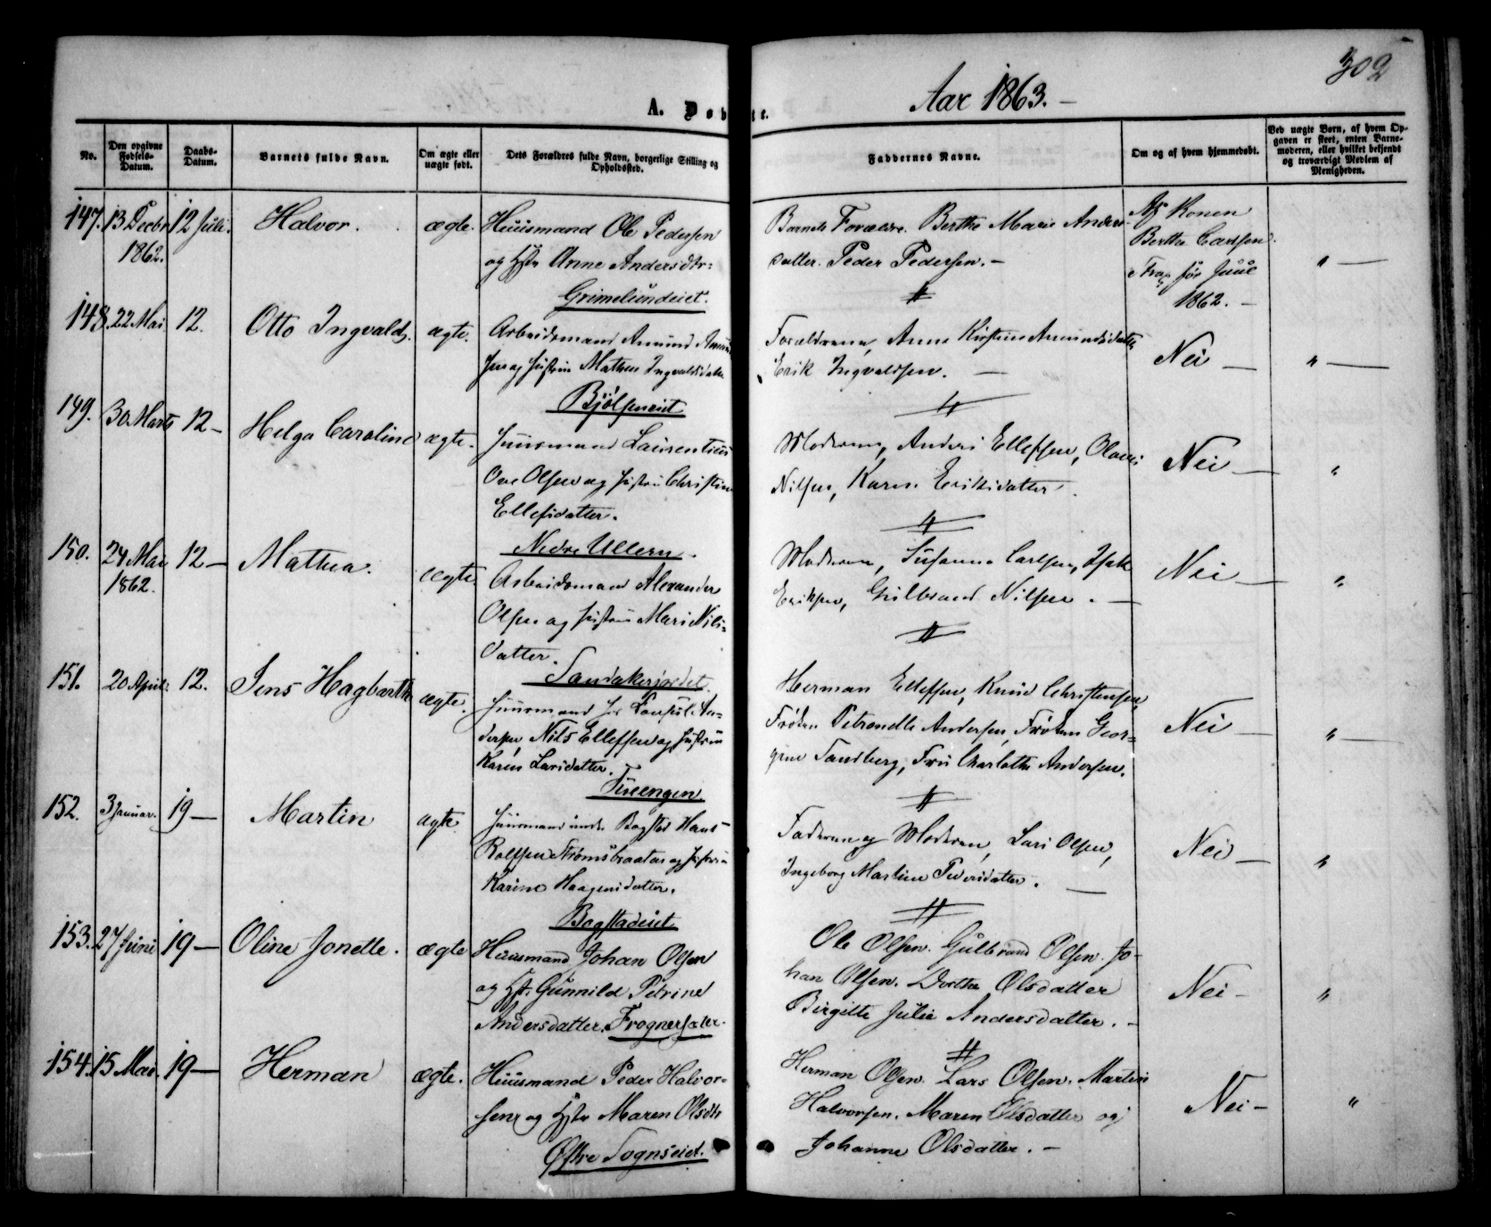 302
Aar 1863.
A. Døbte.
No.
Den opgivne Fødsels-Datum.
Daabs-Datum.
Barnets fulde Navn.
Om ægte eller uægte født.
Dets Forældres fulde Navn, borgerlige Stilling og Opholdssted.
Faddernes Navne.
Om og af hvem hjemmedøbt.
Ved uægte Børn, af hvem Opgaven er skeet, enten Barnemoderen, eller hvilket bekjendt og troværdigt Medlem af Menigheden.
147. 13 Decbr 1862. 12 Juli. Halvor. ægte.
Huusmand Ole Pedersen
og Hstr Anne Andersdtr
Grimelundeiet.
Barnets Forældre. Berthe Marie Anders-
datter. Peder Pedersen.
Af Konen
Berthe Carlsen
før Juul
1862.
148. 22 Mai 12. Otto Ingvald. ægte.
Arbeidsmand Amund Amund
sen og Hustru Mathea Ingvaldsdatter
Bjølseneiet
Forældrene, Anne Kirstine Amundsdatter
Erik Ingvaldsen.
Nei
149. 30 Marts 12 Helga Caroline ægte.
Huusmand Laurentius
Ove Olsen og Hustru Christine
Ellefsdatter.
Nedre Ullern.
Moderen, Anders Ellefsen, Olaus
Nilsen, Karen Eriksdatter.
Nei
150. 24 Mai 1862. 12 Mathea. ægte
Arbeidsmand Alexander
Olsen og Hustru Mari Nils-
datter.
Sandakerjordet.
Moderen, Susanne Carlsen, Isak
Eriksen, Gulbrand Nilsen.
Nei
151. 20 April 12. Jens Hagbarth ægte.
Huusmand for Konsul An-
dersen Nils Ellefsen og Hustru
Karen Larsdatter.
Tuseengen
Herman Ellefsen, Knud Christensen,
Frøken Petronelle Andersen, Frøken Geor-
gine Sandberg, Fru Charlotte Andersen.
Nei
152. 3 Januar. 19 Martin ægte
Huusmand under Bogstad Hans
Rolfsen Strømsbraaten og Hustru
Karine Haagensdatter.
Bogstadeiet
Faderen og Moderen, Lars Olsen,
Ingeborg Martine Pedersdatter.
Nei
153. 27 Juni 19 Oline Jonette. ægte
Huusmand Johan Olsen
og Hst. Gunnild Petrine
Andersdatter. Frognersæter.
Ole Olsen. Gulbrand Olsen. Jo-
han Olsen. Dorthe Olsdatter
Birgitte Julie Andersdatter.
Nei
154. 15 Mai. 19 Herman ægte.
Huusmand Peder Halvor-
sen og Hstr Maren Olsdtr
Østre Sognseiet.
Herman Olsen. Lars Olsen. Martin
Halvorsen. Maren Olsdatter og
Johanne Olsdatter.
Nei